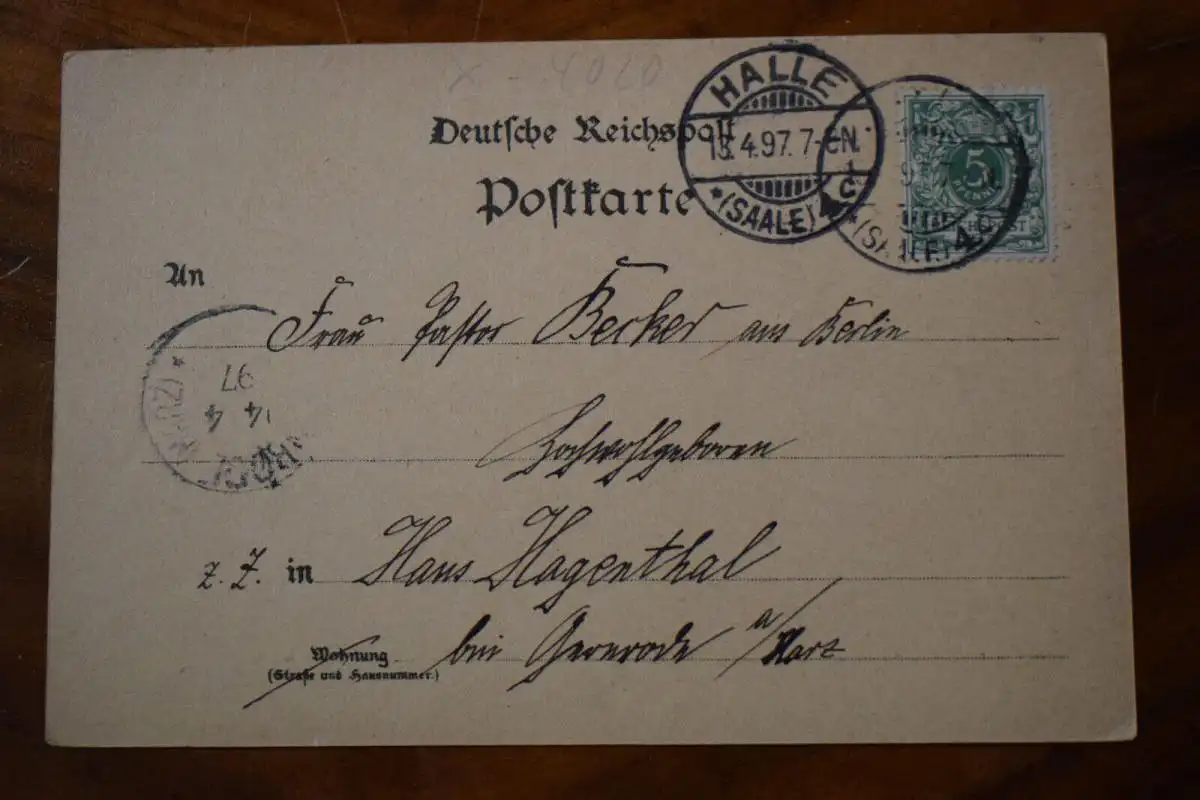 x - 4020
Deutsche Reichspost
Postkarte
HALLE
13.4.97. 7-8N.
*(SAALE) 4c
5
(SAALE) 4c
An
Frau Pastor Becker aus Berlin
Hochwohlgeboren
14 4
97
(HARZ) *
z. Z. in Haus Hagenthal
Wohnung
(Straße und Hausnummer.)
bei Gernrode a/Harz